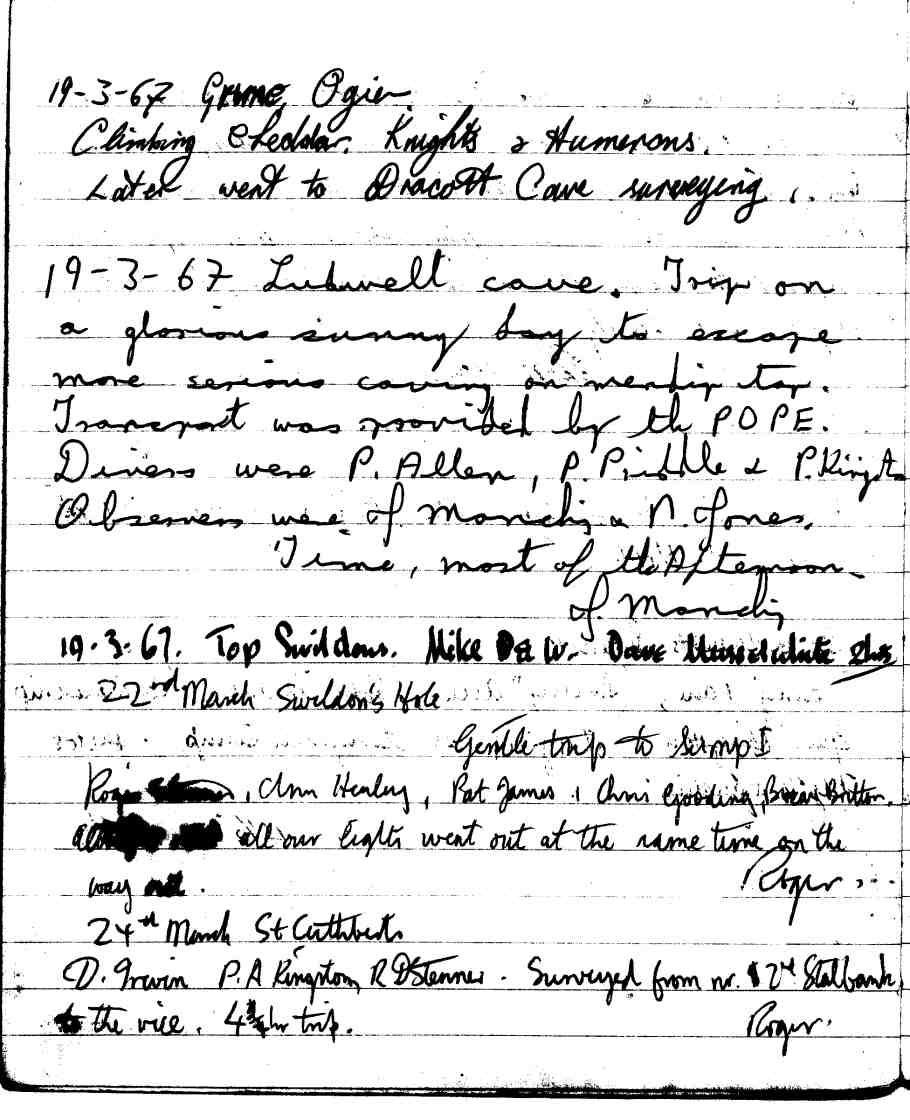 19-3-67 Ogier.
Climbing Cheddar. Knights & Humerons.
Later went to Dracott Cave surveying.
19-3-67 Ludwell cave. Trip on
a glorious sunny day to escape
more serious caving on mendip top.
Transport was provided by th POPE.
Divers were P. Allen, P. Priddle & P. Kingst
Observers were J. Manchip & N. Jones.
Time, most of th Afternoon.
J. Manchip
19.3.67. Top Swildons. Mike W. Dave 2hrs
22nd March Swildon's Hole
Gentle trip to Sump I
Roger, Ann Henley, Pat James, Chris Gooding, Brian Britton.
all our lights went out at the same time on the
way out.
Roger...
24th March St Cuthberts
D. Irwin P.A Kingston, R D Stenner. Surveyed from nr. Stalbank
to the vice. hr trip.
Roger.